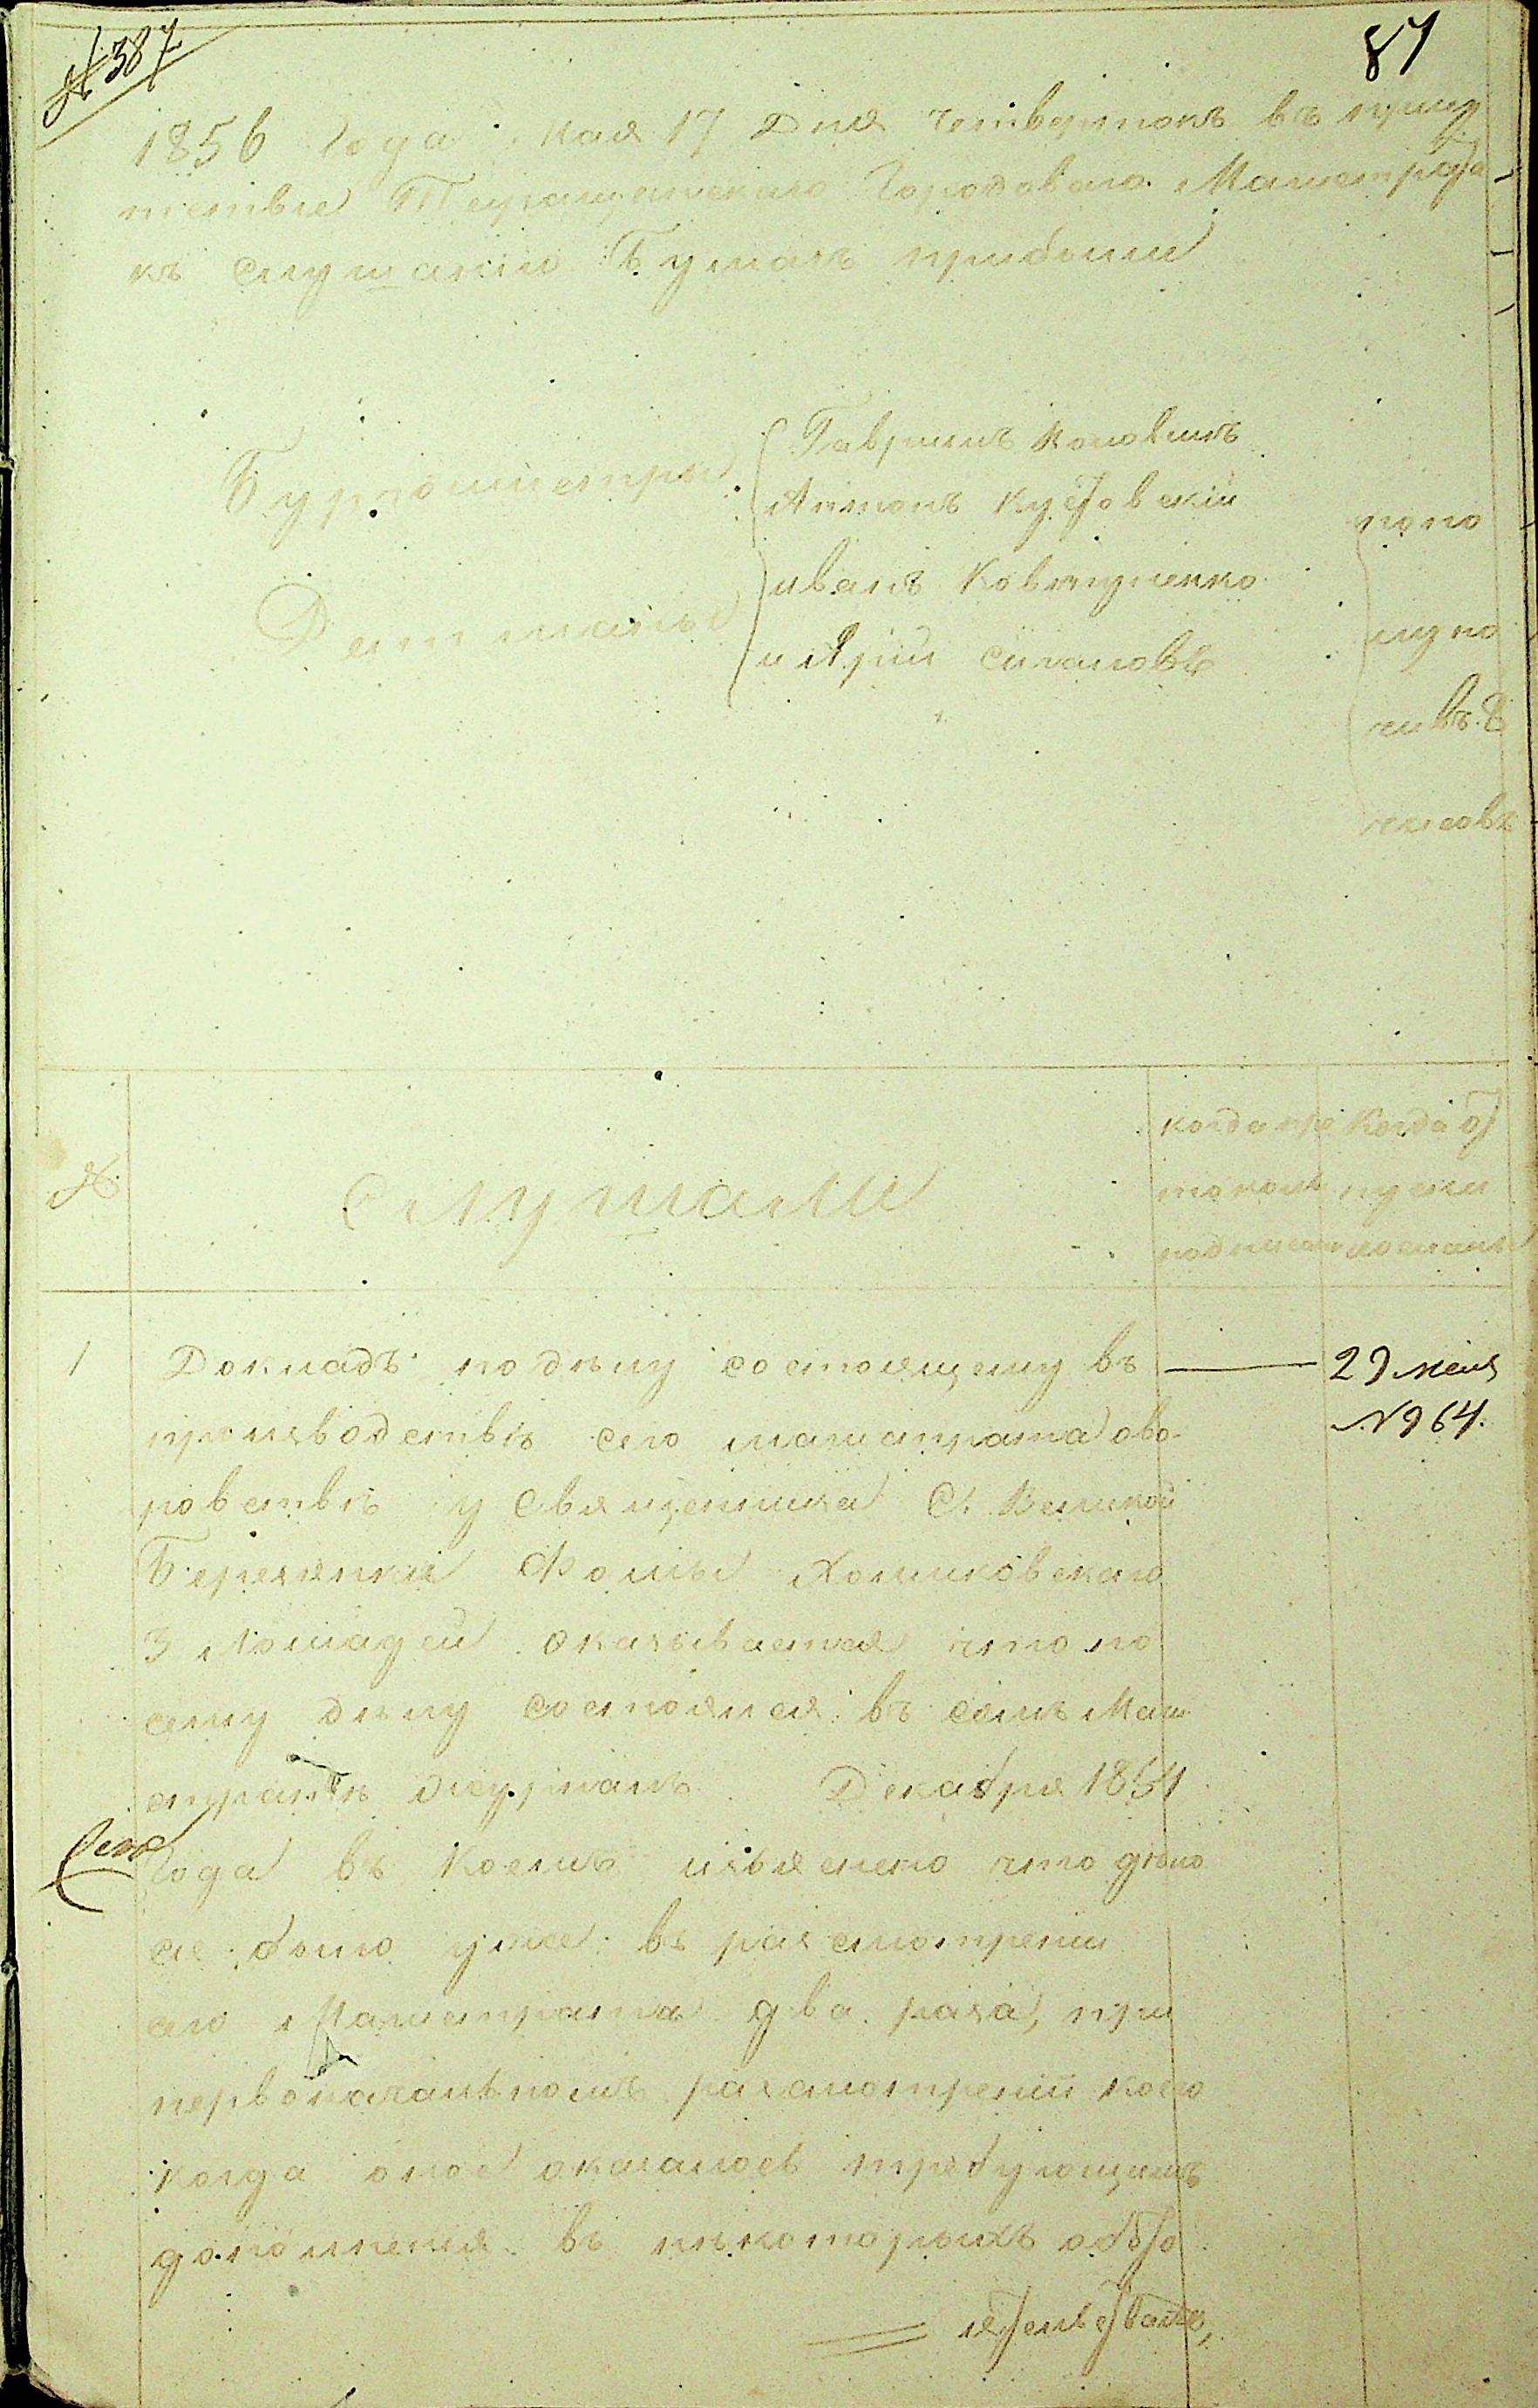 № 387
87
1856 года мая 17 Дня четвертокъ въ прису
тствіе Таращанскаго Городоваго Магистрата
къ слушанію Бумагъ прибыли
Бургомистры
Гаврилъ
Антонъ
Ратманы
иванъ Ковтуненко
и
попо
лудно
часовъ
№
Слушали
когда про
токолъ
подписан
Когда от
пуски
посланы
1
Докладъ по дѣлу состоящему въ
производствѣ сего магистрата о во
ровствѣ у Священника С. Великой
Березянки Фомы
3 лошадей оказывается что по
сему дѣлу состоялся въ семъ Маги
стратѣ журналъ Декабря 1854
года въ коемъ изъяснено что дѣло
сіе было уже въ разсмотреніи
сего Магистрата два раза, при
первоначальномъ разсмотреніи коего
когда оное оказалось требующимъ
дополненія въ нѣкоторыхъ обсто
ятельствахъ,
29 мая
№ 964.